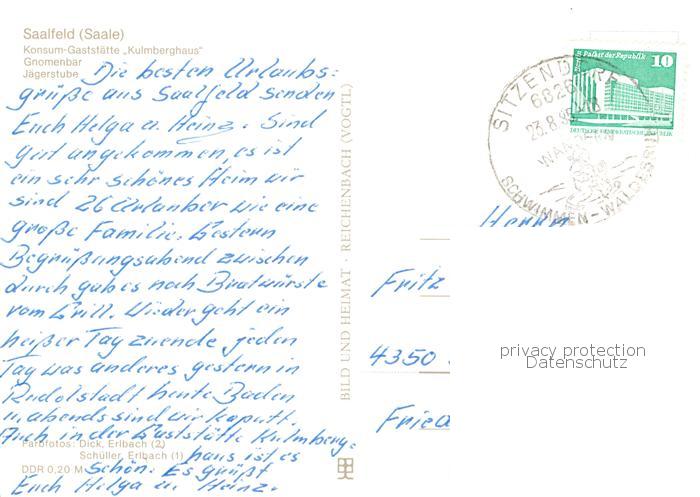 Saalfeld (Saale)
Konsum-Gaststätte „Kulmberghaus"
Gnomenbar
Jägerstube
Die besten Urlaubs=
grüße aus Saalfeld senden
Euch Helga u. Heinz. Sind
gut angekommen, es ist
ein sehr schönes Heim wir
sind 26 Urlauber wie eine
große Familie. Gestern
Begrüßungsabend zwischen
durch gab es noch Bratwürste
vom Grill. Wieder geht ein
heißer Tag zuende, jeden
Tag was anderes gestern in
Rudolstadt heute Baden
u. abends sind wir kaputt.
Auch in der Gaststätte Kulmberg=
haus ist es
schön. Es grüßt
Euch Helga u. Heinz.
Farbfotos: Dick, Erlbach (2)
Schüller, Erlbach (1)
DDR 0,20 M
BILD UND HEIMAT · REICHENBACH (VOGTL)
Palast der Republik
10
DEUTSCHE DEMOKRATISCHE
SITZENDORF
6826
23.8.
WANDERN
SCHWIMMEN - WALDESRUH
Herrn
Fritz
4350
Frie
privacy protection
Datenschutz